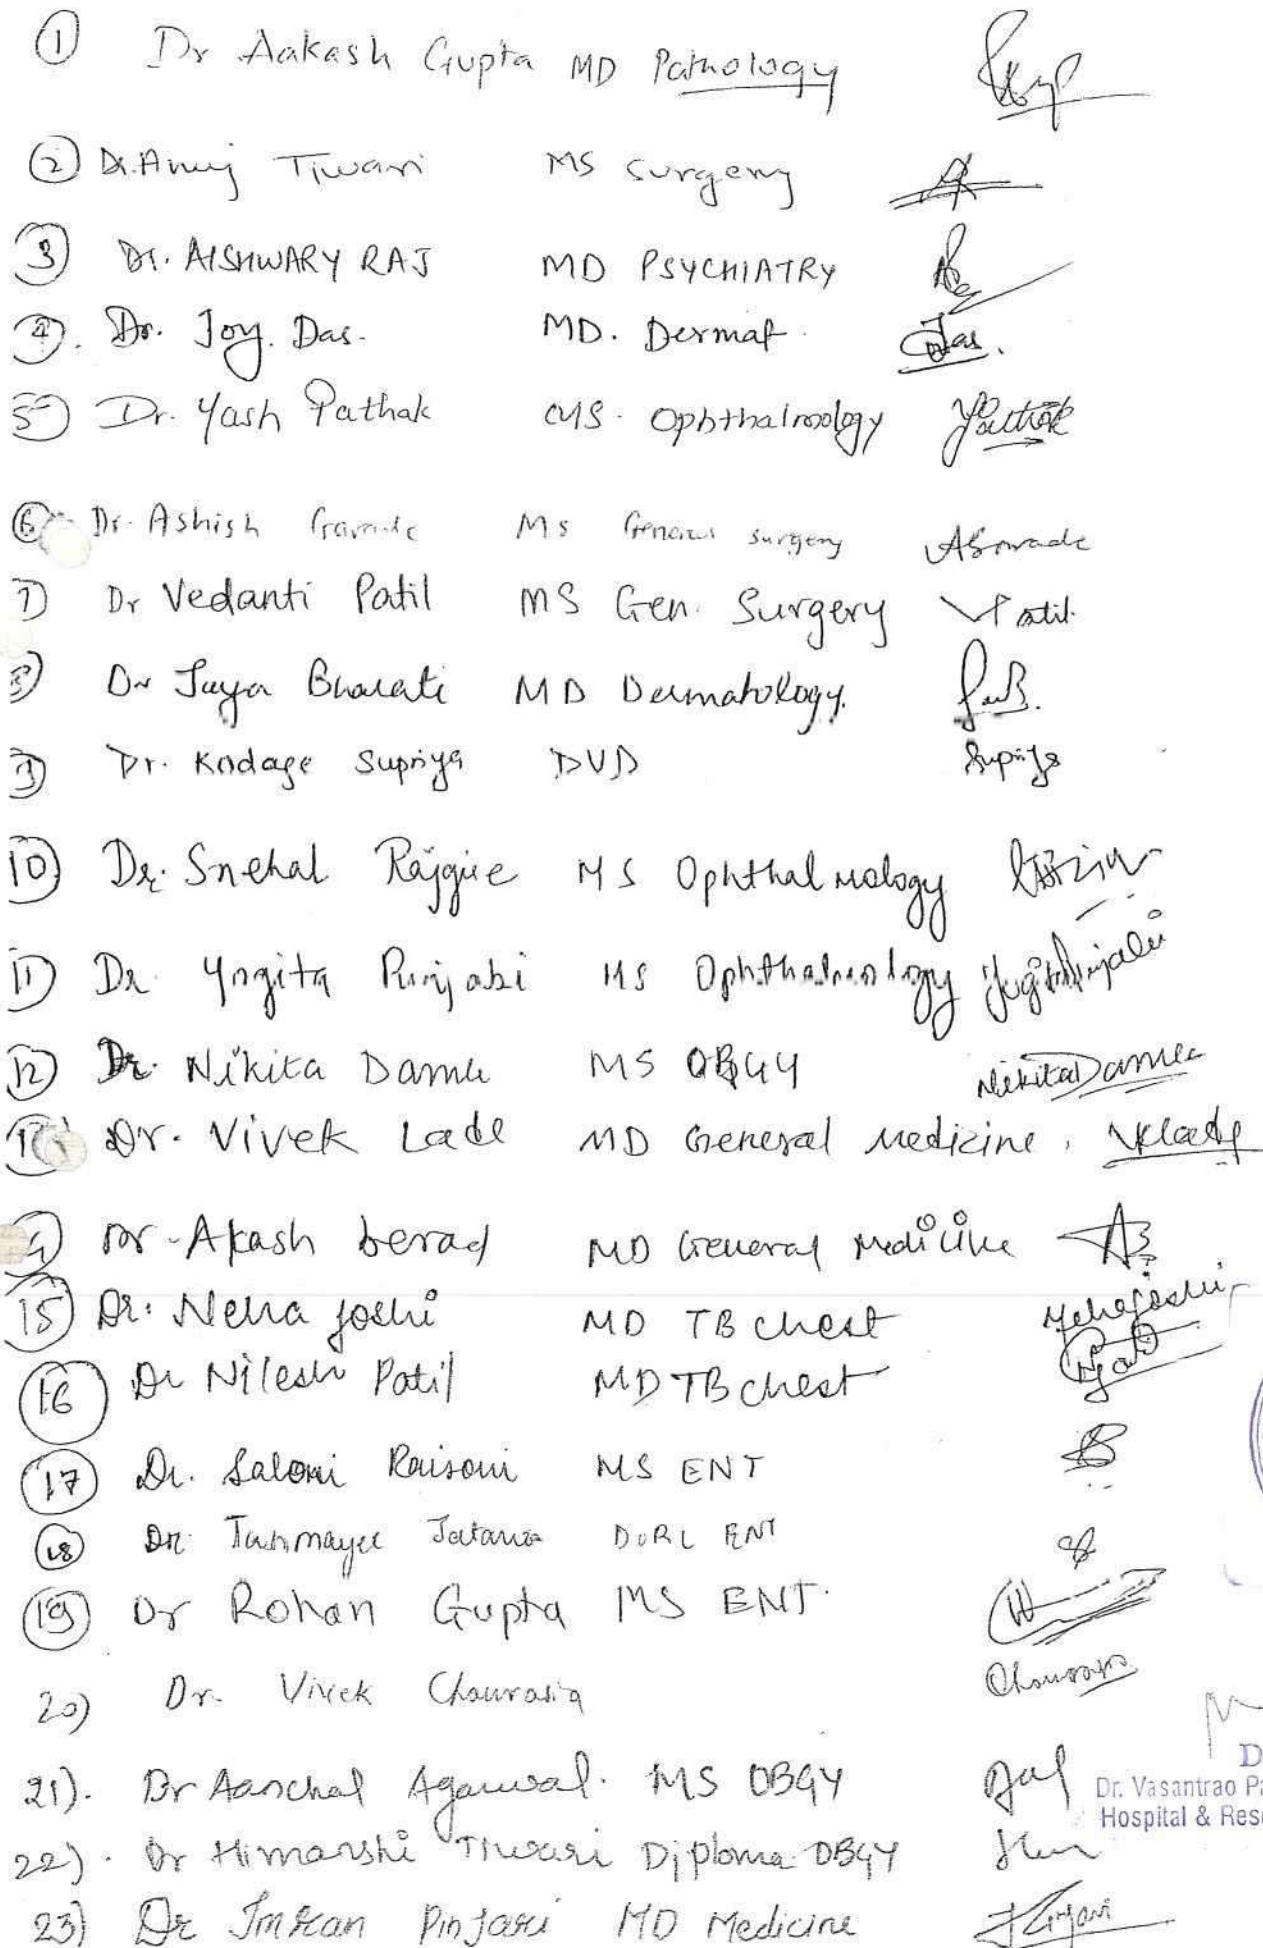 ① Dr Aakash Gupta MD Pathology
② Dr. Anuj Tiwari MS Surgery
③ Dr. AISHWARY RAJ MD PSYCHIATRY
④. Dr. Joy. Das. MD. Dermat. Das.
5) Dr. Yash Pathak MS. Ophthalmology Pathak
⑥ Dr. Ashish MS General surgery
7) Dr Vedanti Patil MS Gen. Surgery VPatil.
8) Dr Jaya Bharati MD Dermatology.
9) Dr. Kodage Supriya DVD Supriya
10) Dr. Snehal Rajgire MS Ophthalmology
11) Dr. Yogita Punjabi MS Ophthalmology Yogita Punjabi
12) Dr. Nikita Damle MS OBGY Nikita Damle
Dr. Vivek Lade MD General Medicine. VLade
Dr. Akash berad MD General Medicine
15) Dr. Neha Joshi MD TB Chest Neha Joshi
16 Dr Nilesh Patil MD TB Chest
17 Dr. Saloni Raisoni MS ENT
18 Dr. Tanmayee DORL ENT
19 Dr Rohan Gupta MS ENT.
20) Dr. Vivek Chourasia
21). Dr Aanchal Agarwal. MS OBGY
Dr. Vasantrao Pa
Hospital & Res
22). Dr Himanshi Tiwari Diploma OBGY
23) Dr Imran Pinjari MD Medicine